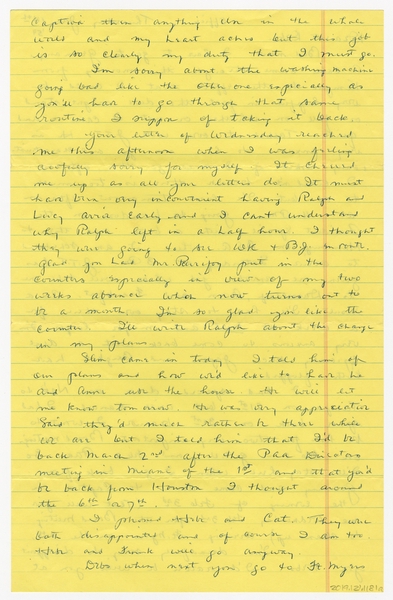 Captiva than anything else in the whole
world and my heart aches but this job
is so clearly my duty that I must go.
I'm sorry about the washing machine
going bad like the other one especially as
you'll have to go through that same
routine I suppose of taking it back.
Your letter of Wednesday reached
me this afternoon when I was feeling
awfully sorry for myself. It cheered
me up as all your letters do. It must
have been very inconvenient having Ralph and
Lucy arrive early and I can't understand
why Ralph left in a half hour. I thought
they were going to see WK & BJ en route.
Glad you had Mr. Purifoy put in the
counters especially in view of my two
weeks absence which now turns out to
be a month. I'm so glad you like the
counter. I'll write Ralph about the change
in my plans.
Slim came in today. I told him of
our plans and how we'd like to have he
and Anne use the house. He will let
me know tomorrow. He was very appreciative
Said they'd much rather be there while
we are but I told him that I'd be
back March 2nd after the PAA Directors
meeting in Miami of the 1st and that you'd
be back from Houston I thought around
the 6th or 7th.
I phoned and Cat. They were
both disappointed and of course I am too.
and Frank will go anyway.
when next you go to Ft. Myers